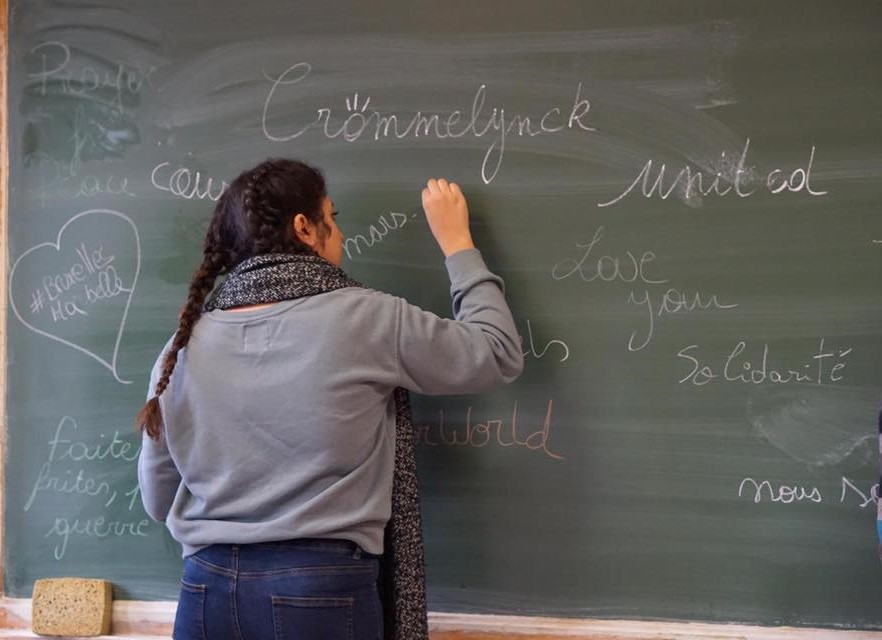 Prayer
Crömmelynck
united
#Bruxelles
Ma belle
Love
you
Solidarité
World
faite
frites,
guerre
nous